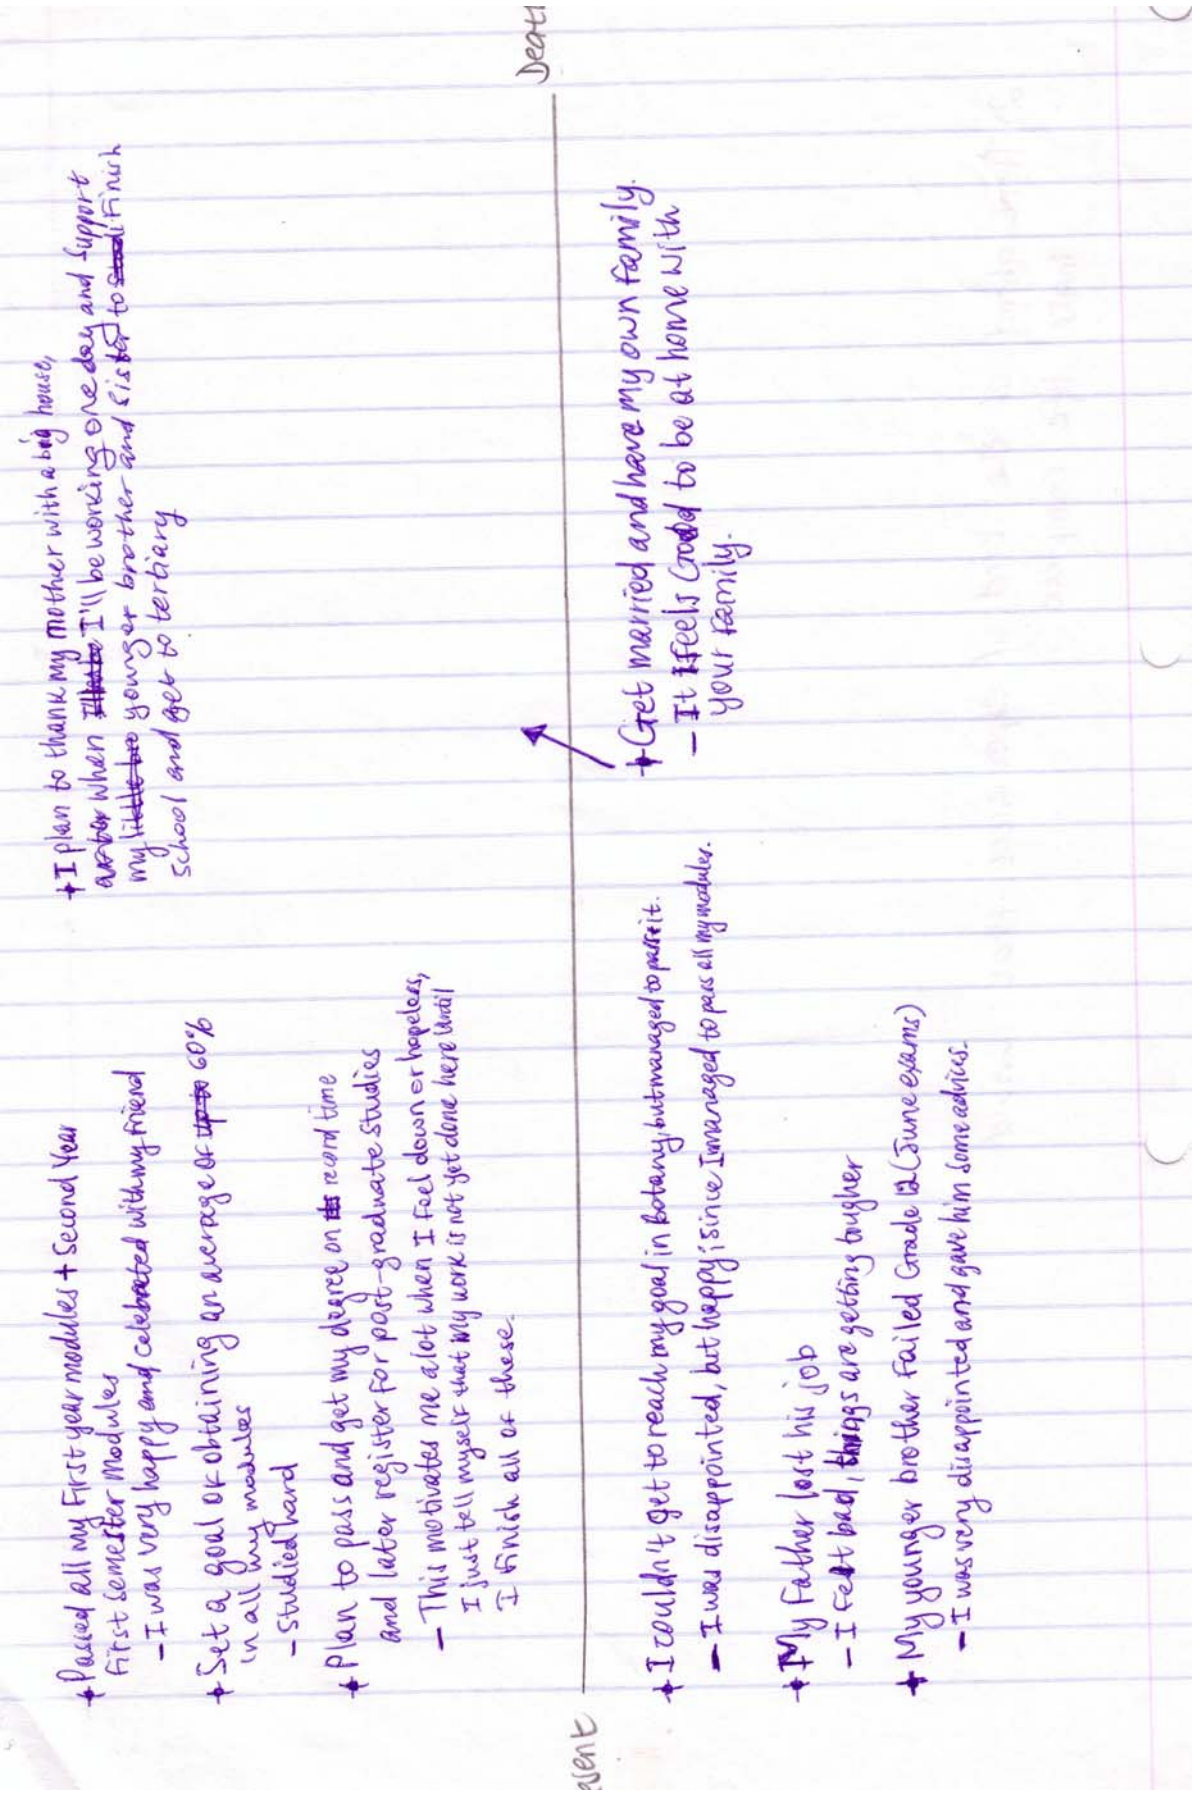 + Passed all my First year modules + Second Year
First semester Modules
- I was very happy and celebrated with my friend
+ Set a goal of obtaining an average of 60%
in all my modules
- Studied hard
+ Plan to pass and get my degree on record time
and later register for post-graduate studies
- This motivates me alot when I feel down or hopeless,
I just tell myself that my work is not yet done here until
I finish all of these.
+ I plan to thank my mother with a big house,
when I'll be working one day and support
my younger brother and sister to Finish
School and get to tertiary
esent
Death
+ I couldn't get to reach my goal in Botany, but managed to pass it.
- I was disappointed, but happy since I managed to pass all my modules.
+ My Father lost his job
- I felt bad, things are getting tougher
+ My younger brother Failed Grade 12 (June exams)
- I was very disappointed and gave him some advices.
+ Get married and have my own Family.
- It Feels Good to be at home with
your Family.